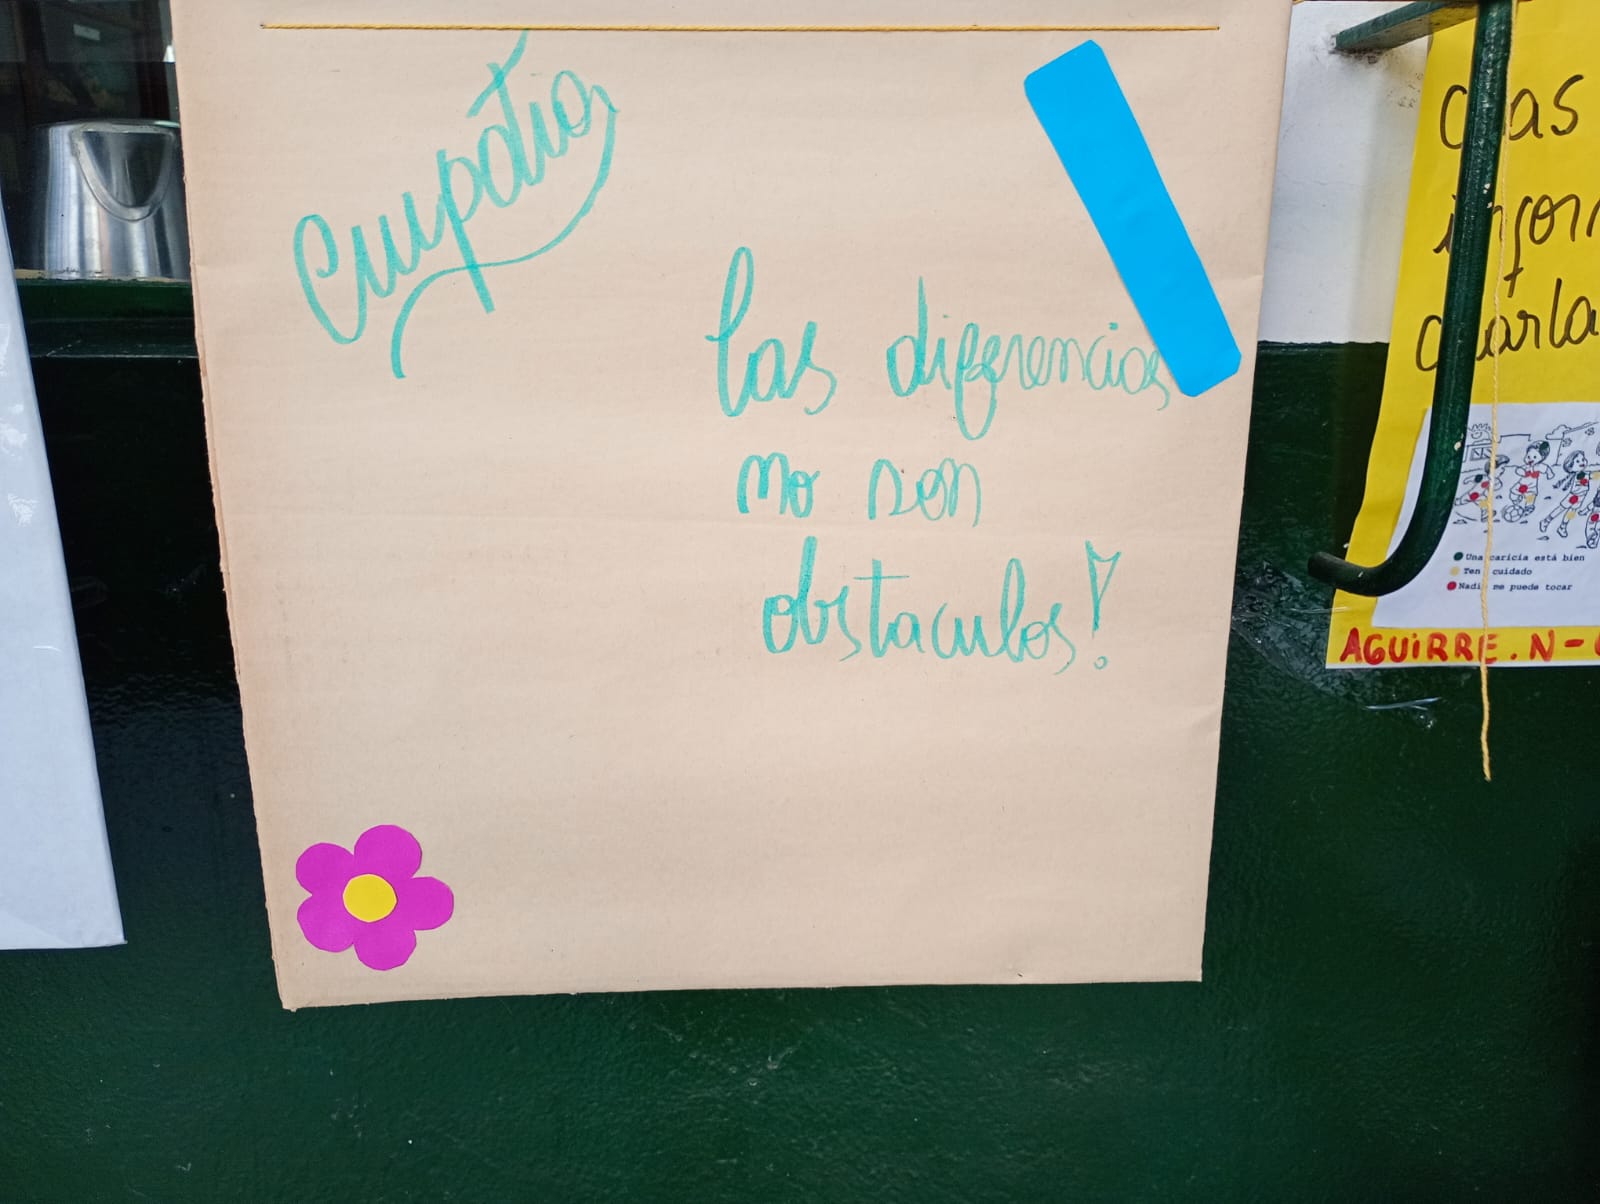 Empatia
las diferencias
no son
obstaculos!
infor
charla
Una caricia está bien
Ten cuidado
Nadie me puede tocar
AGUIRRE. N -